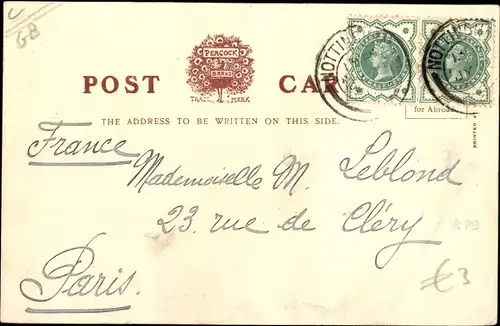 GB
PEACOCK
BRAND
TRADE MARK
POST CAR
NOTTIN
NOTTIN
for Abroad
THE ADDRESS TO BE WRITTEN ON THIS SIDE.
PRINTED AT
France
Mademoiselle M. Leblond
23 rue de Cléry
Paris.
£3